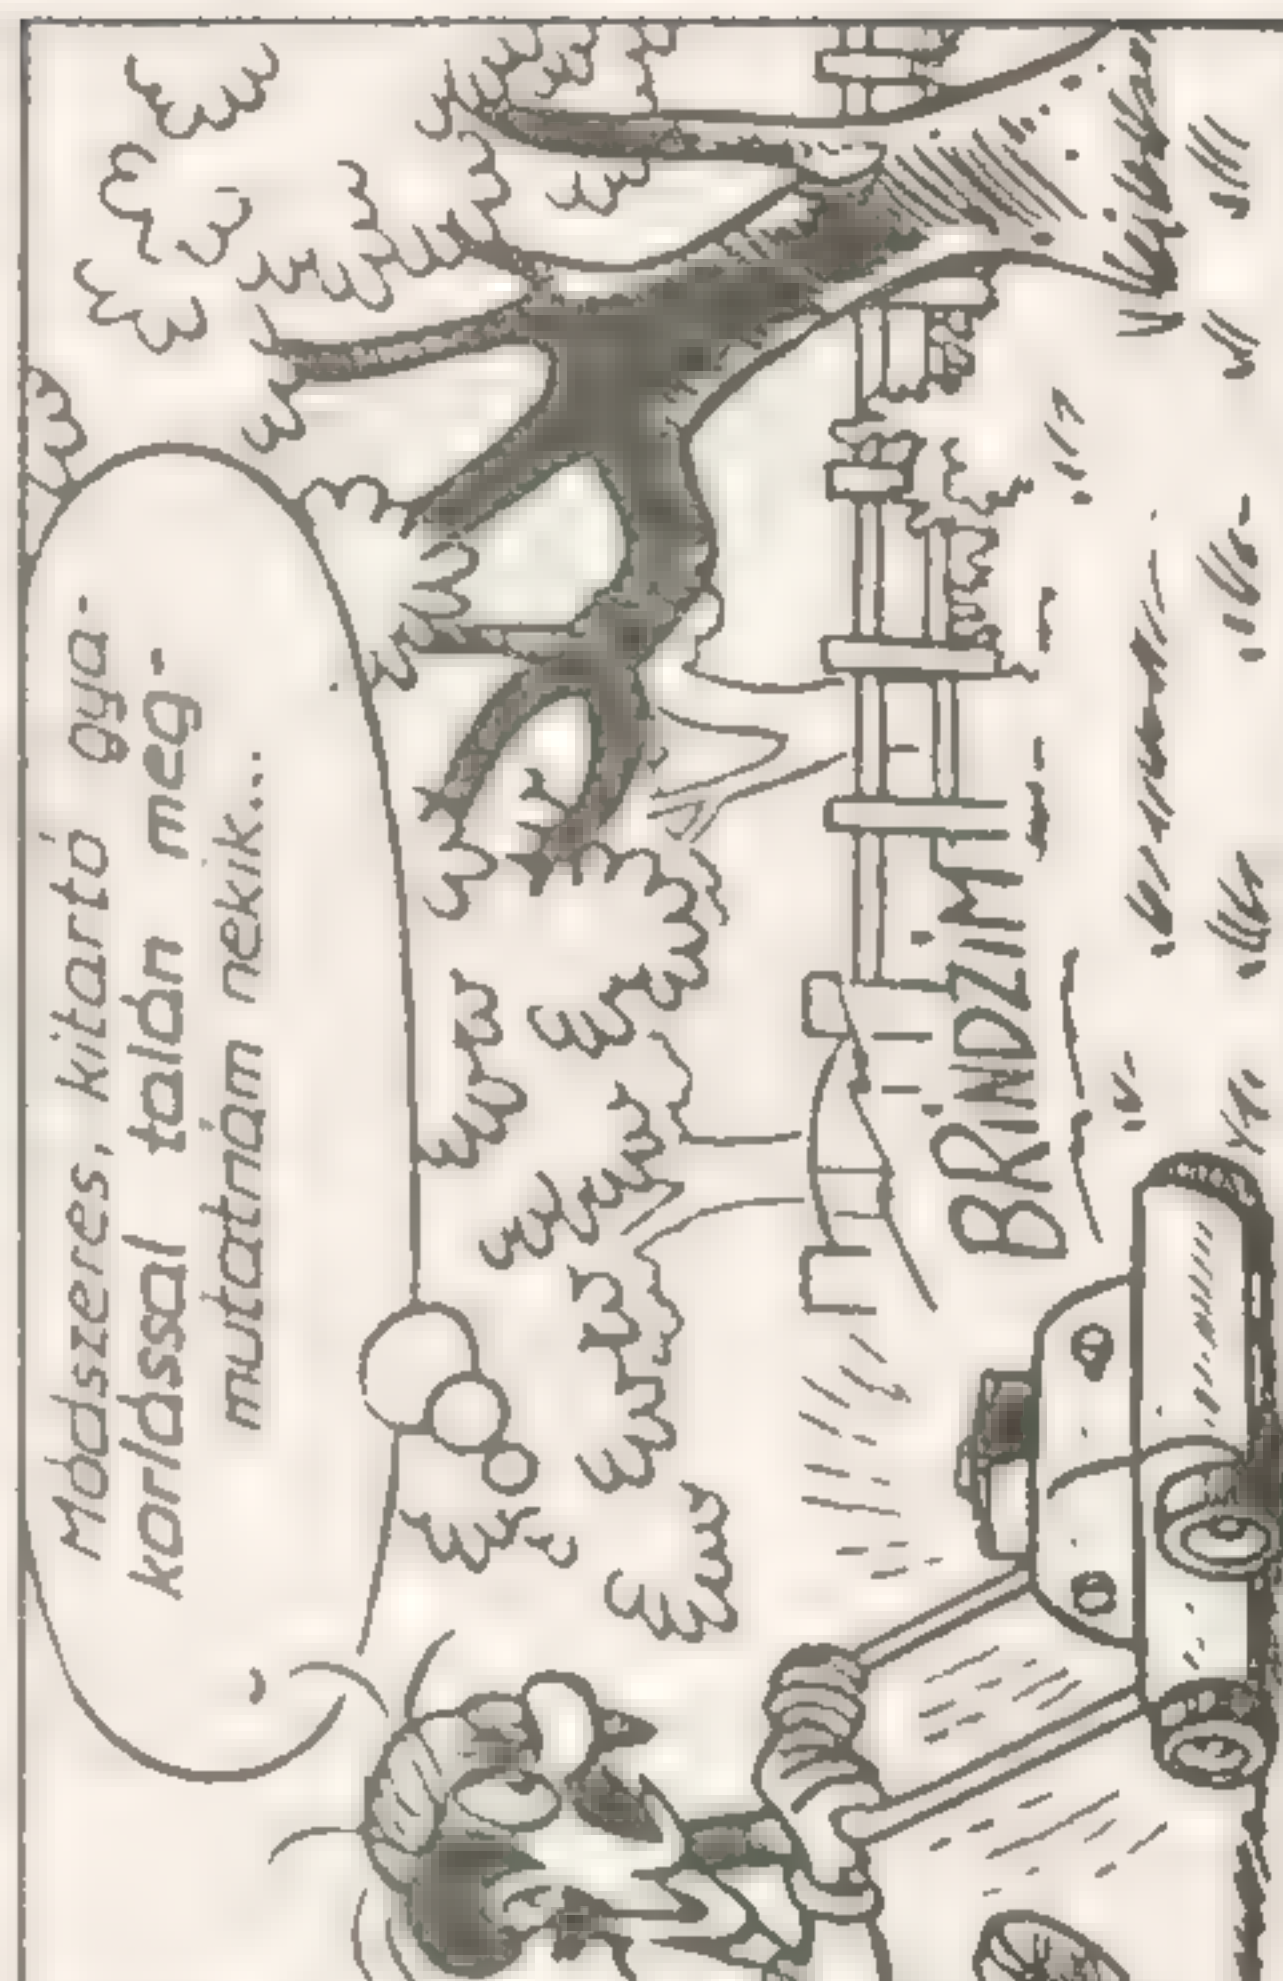 Módszeres, kitartó gya-
korlással talán meg-
mutatnám nekik...
BRiNDZiM